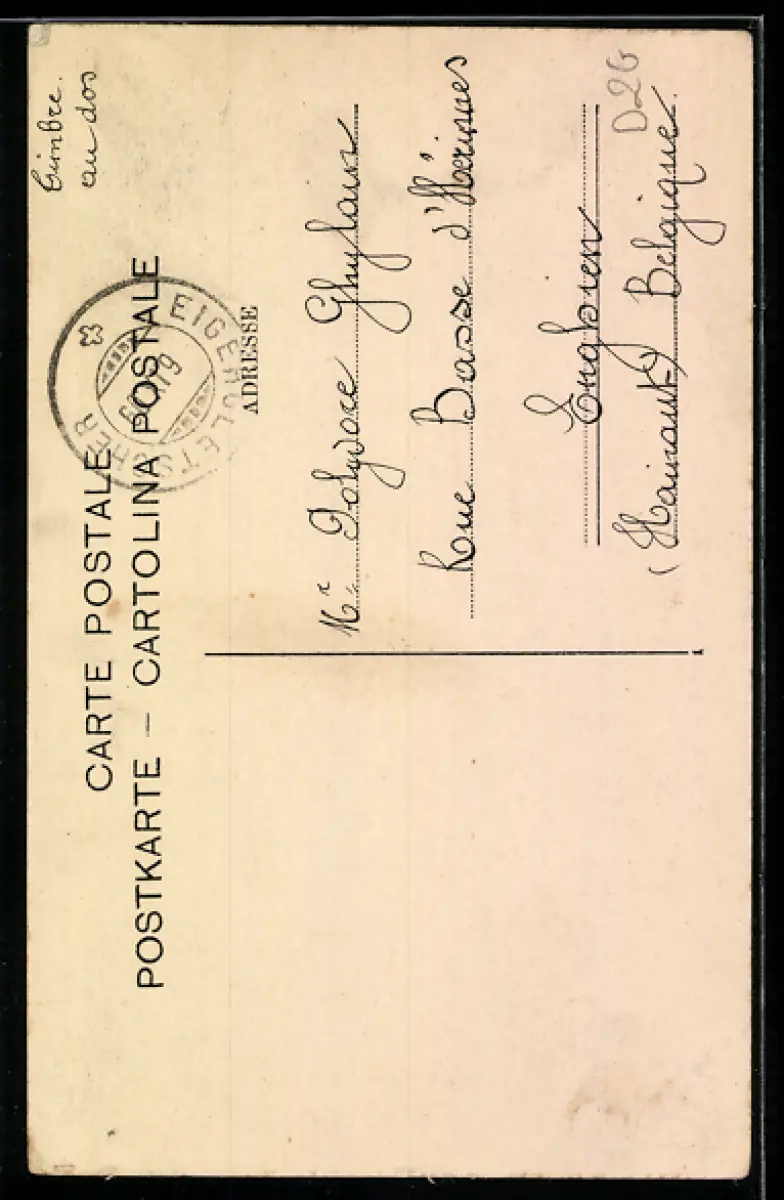 Timbre
au dos
CARTE POSTALE
POSTKARTE — CARTOLINA POSTALE
EIGERGLETSCHER
ADRESSE
Mr Polydore Ghylain
Rue Basse d'Hérinnes
Enghien
(Hainaut) Belgique.
D26